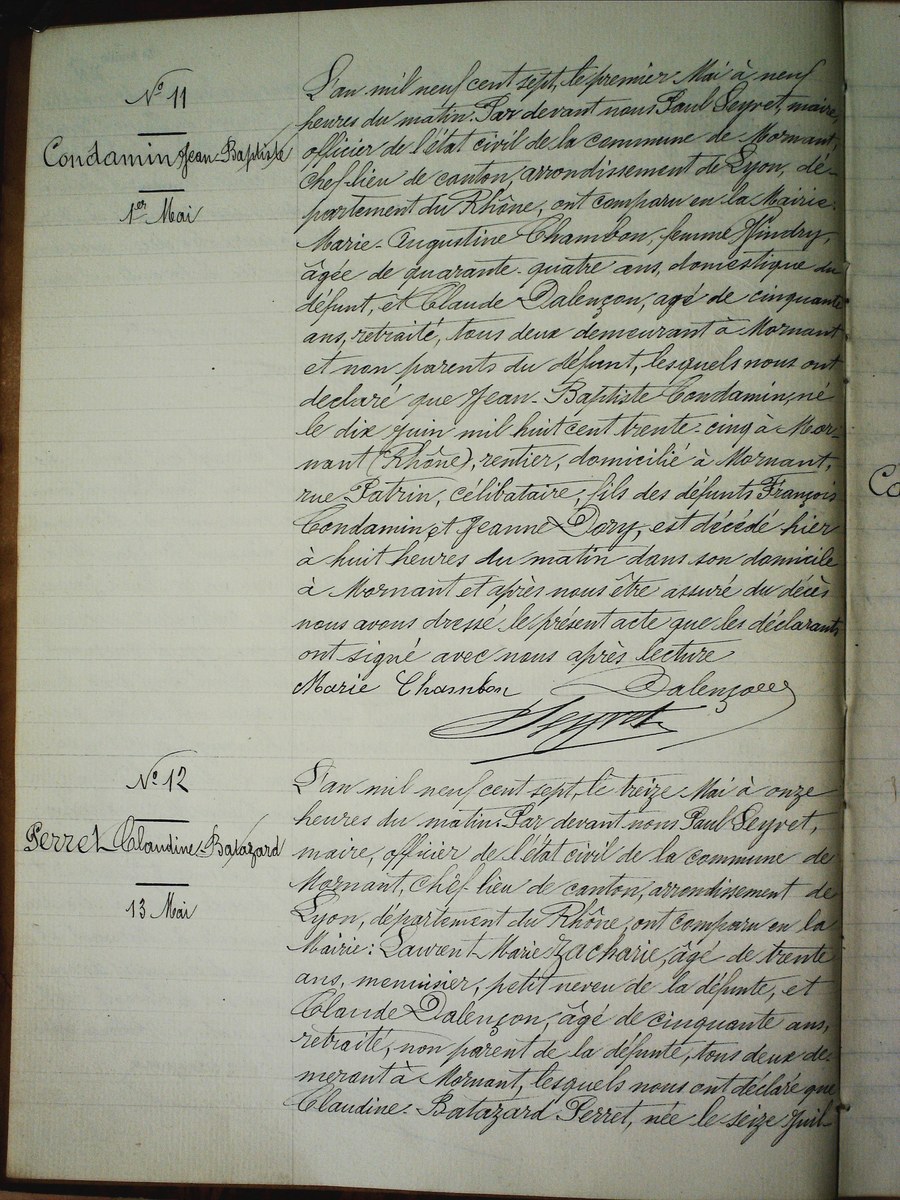 N° 11
Condamin Jean-Baptiste
1er Mai
L'an mil neuf cent sept, le premier Mai à neuf
heures du matin. Par devant nous Paul Seyvet, maire,
officier de l'état civil de la commune de Mornant,
chef-lieu de canton, arrondissement de Lyon, dé-
partement du Rhône, ont comparu en la Mairie:
Marie-Augustine Chambon, femme Jindry,
âgée de quarante-quatre ans, domestique du
défunt, et Claude Dalençon, agé de cinquante
ans, retraité, tous deux demeurant à Mornant
et non parents du défunt, lesquels nous ont
declaré que Jean-Baptiste Condamin, né
le dix Juin mil huit cent trente-cinq à Mor-
nant (Rhône), rentier, domicilié à Mornant,
rue Patrin, célibataire, fils des défunts François
Condamin et Jeanne Dory, est décédé hier
à huit heures du matin dans son domicile
à Mornant et après nous être assuré du décès
nous avons dressé le présent acte que les déclarants
ont signé avec nous après lecture
Marie Chambon Dalençon
Seyvet
N° 12
Perret Claudine Batazard
13 Mai
L'an mil neuf cent sept, le treize Mai à onze
heures du matin. Par devant nous Paul Seyvet,
maire, officier de l'état civil de la commune de
Mornant, chef-lieu de canton, arrondissement de
Lyon, département du Rhône, ont comparu en la
Mairie: Laurent-Marie Zacharie, âgé de trente
ans, menuisier, petit neveu de la défunte, et
Claude Dalençon, âgé de cinquante ans,
retraité, non parent de la défunte, tous deux de-
merant à Mornant, lesquels nous ont déclaré que
Claudine-Batazard Perret, née le seize Juil-
Co